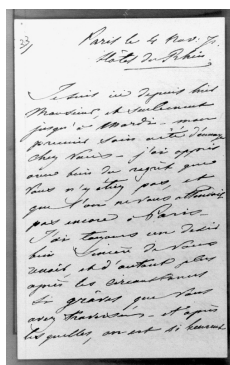 33
Paris le 4 Nov. 71.
Hôtel du Rhin
Je suis ici depuis hier
Monsieur, et seulement
jusqu'à Mardi - mon
premier soin a été d'envoyer
chez vous - j'ai appris
avec bien du regret que
vous n'y étiez pas, et
que l'on ne vous attendait
pas encore à Paris -
J'ai toujours un désir
bien sincère de vous
revoir et d'autant plus
après les circonstances
si graves que vous
avez traversées - et après
lesquelles, on est si heureux